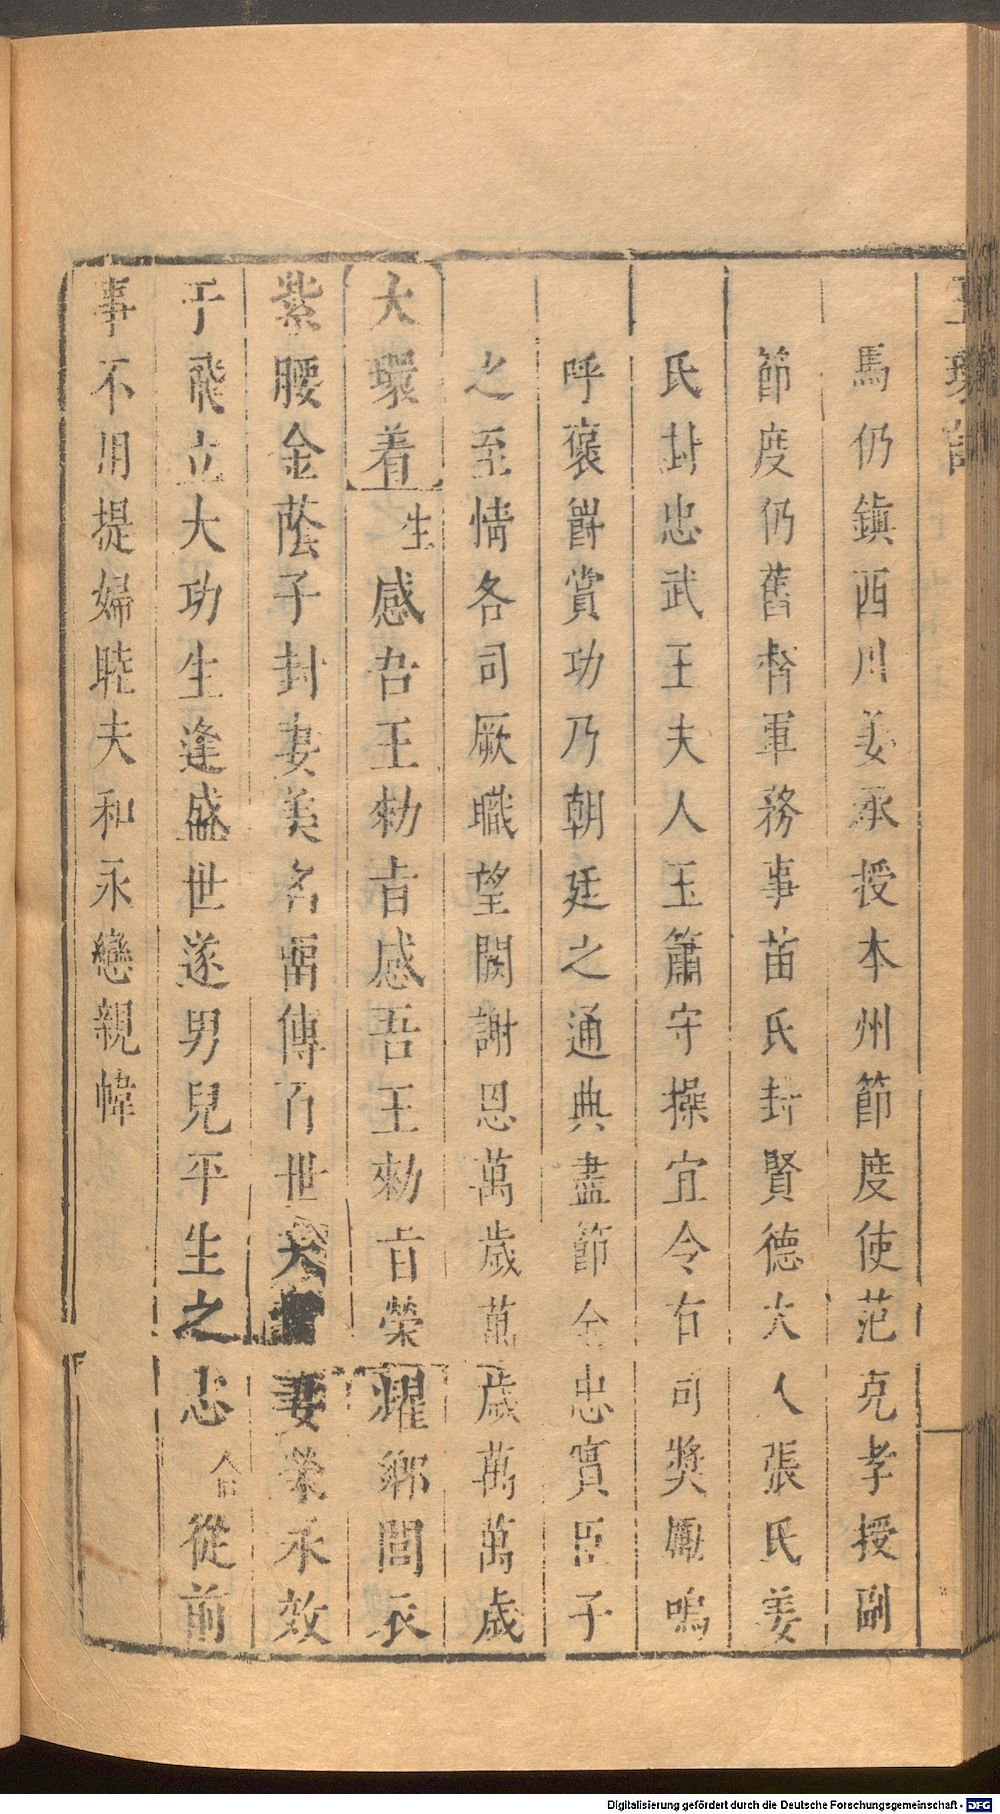 玉環記
馬仍鎮西川姜承授本州節度使范克孝授副
節度仍舊督軍務事苗氏封賢德夫人張氏姜
氏封忠武王夫人玉簫守操宜令有司獎勵嗚
呼褒爵賞功乃朝廷之通典盡節全忠實臣子
之至情各司厥職望闕謝恩萬歲萬歲萬萬歲
大環着生感吾王勑旨感吾王勑旨榮耀鄉閭衣
紫腰金蔭子封妻美名畱傳百世夫 妻榮承效
于飛立大功生逢盛世遂男兒平生之志合從前
事不用提婦睦夫和永戀親幃
Digitalisierung gefördert durch die Deutsche Forschungsgemeinschaft - DFG